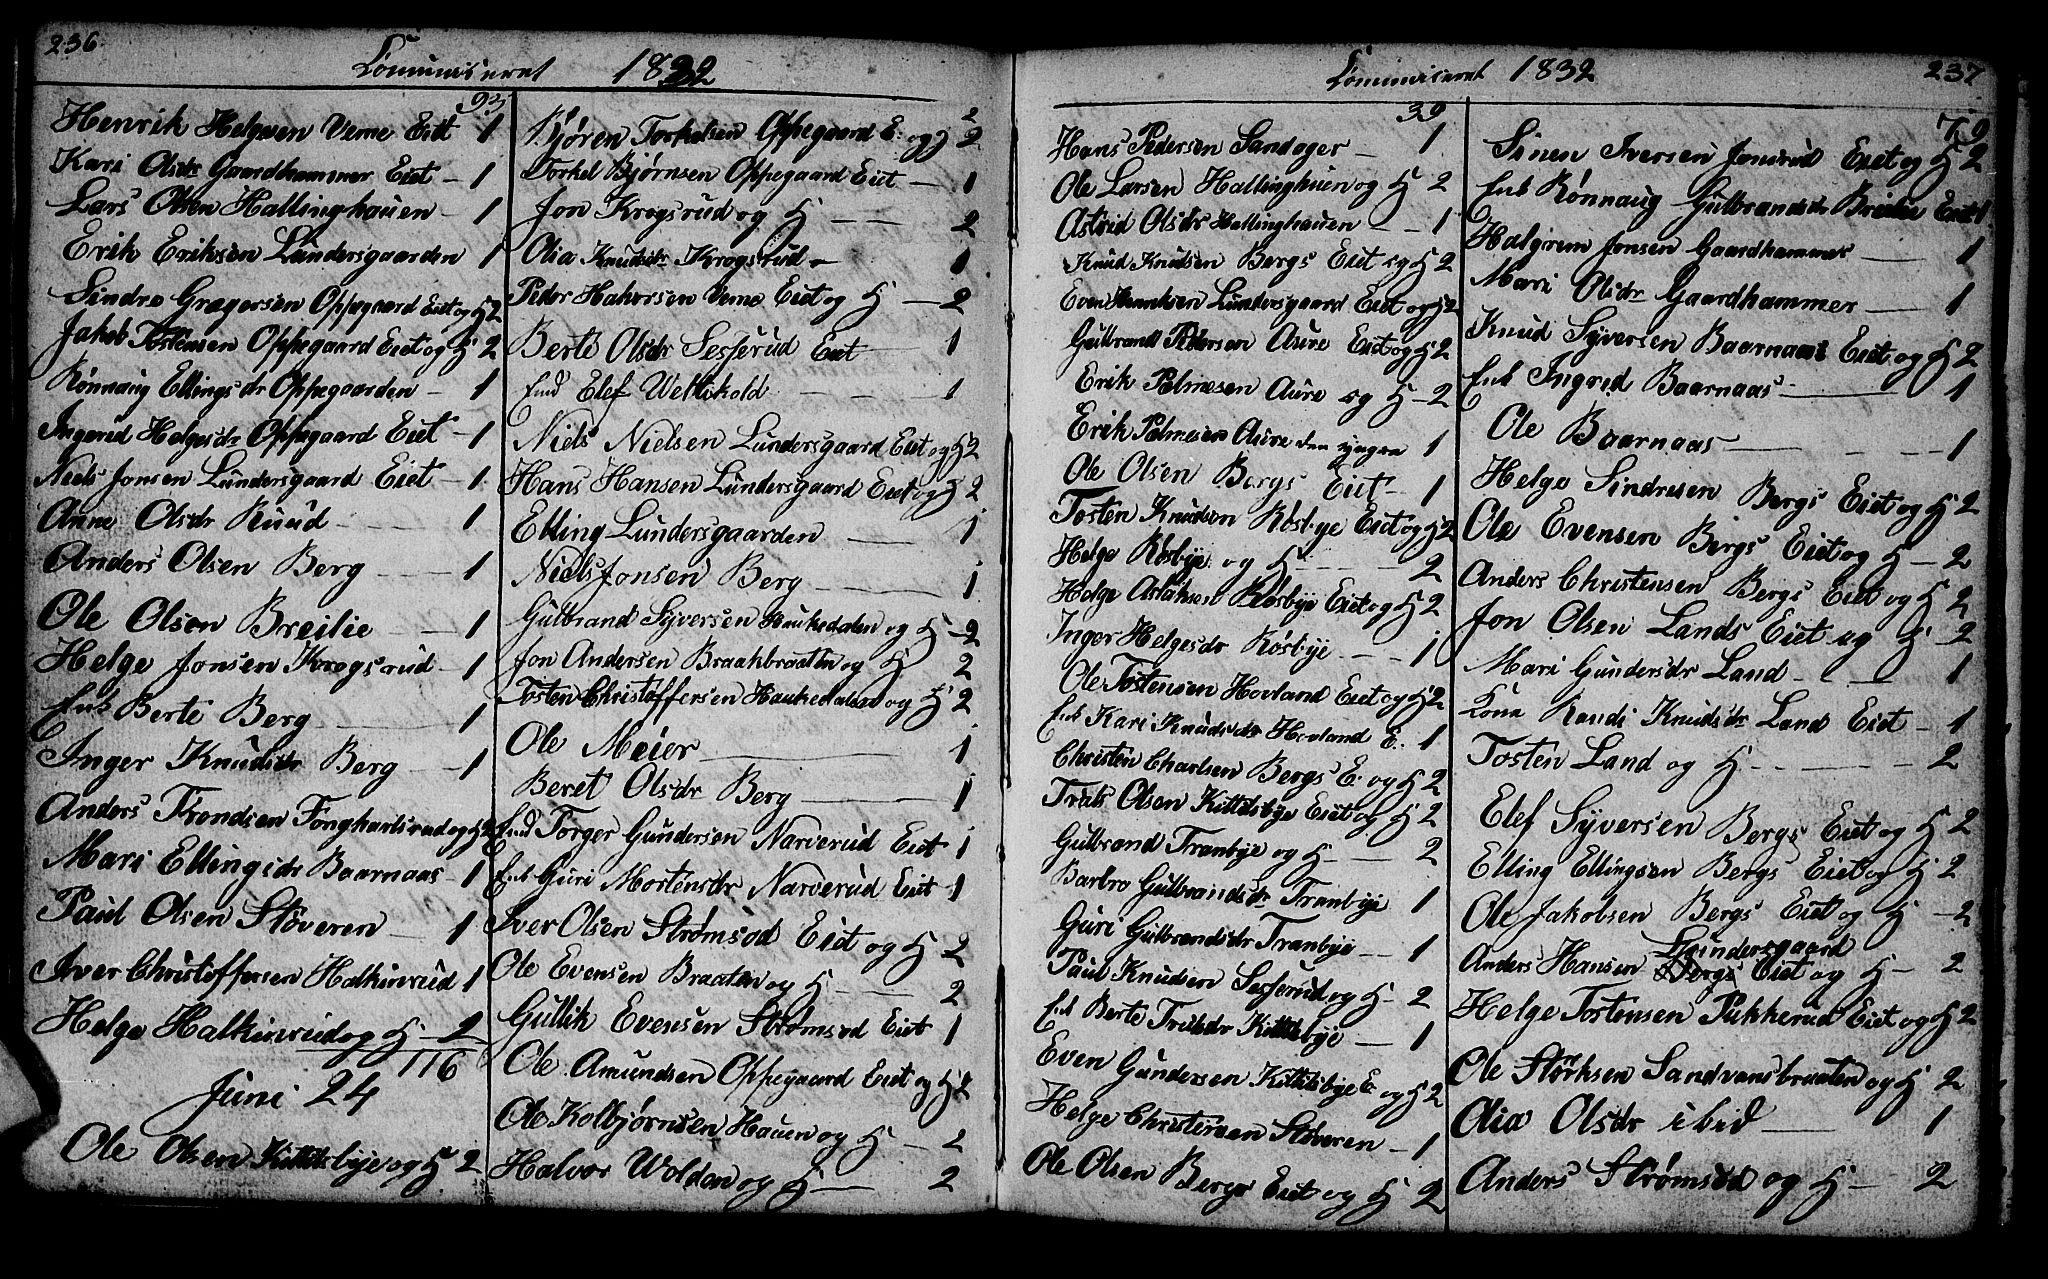 236
Communiseret 1832
93
Henrik Helgesen Verne Eiet 1
Kari Olsdr Gaardhammer Eiet - 1
Lars Olsen Hallinghauen - 1
Erik Eriksen Lundersgaarden 1
Sindre Gregersen Oppegaard Eiet og H 2
Jakob Tostensen Oppegaard Eiet og H 2
Rönnaug Ellingsdr Oppegaarden - 1
Ingerid Helgesdr Oppegaard Eiet - 1
Niels Jonsen Lundersgaard Eiet - 1
Anne Olsdr Ruud - 1
Anders Olsen Berg - 1
Ole Olsen Breilie - 1
Helge Jonsen Krogsrud - 1
Enk Berte Berg - 1
Inger Knudsdr Berg - 1
Anders Trondsen Fongharlsrud og H 2
Mari Ellingsdr Baarnaas - 1
Paul Olsen Støveren - 1
Iver Christoffersen Halkinrud 1
Helge Halkinrud og H - 2
116
Juni 24
Ole Olsen Kittelsbye og H 2
2
Björen Torkelsen Oppegaard E. og H 2
Torkel Bjørnsen Oppegaard Eiet - 1
Jon Krogsrud og H - 2
Olia Knudsdr Krogsrud - 1
Peder Halvorsen Verne Eiet og H - 2
Berte Olsdr Sesserud Eiet 1
End Elef Weltikold - 1
Niels Nielsen Lundersgaard Eiet og H 2
Hans Hansen Lundersgaard Eiet og H 2
Elling Lundersgaarden - 1
Niels Jonsen Berg - 1
Gulbrand Syversen Haukedalen og H - 2
Jon Andersen Braakbraaten og H 2
Tosten Christoffersen Haukedalen og H 2
Ole Meier - 1
Beret Olsdr Berg - 1
End Torger Gundersen Narverud Eiet 1
Enk Guri Mortensdr Narverud Eiet 1
Iver Olsen Strømsod Eiet og H 2
Ole Evensen Braaten og H - 2
Gullik Evensen Strømsod Eiet 1
Ole Amundsen Oppegaard Eiet og H 2
Ole Kolbjørnsen Hauen og H - 2
Halvor Wolden og H - 2
237
Communiseret 1832
39
Hans Pedersen Sandager - 1
Ole Larsen Hallinghuen og H 2
Astrid Olsdr Hallinghauen - 1
Knud Knudsen Bergs Eiet og H 2
Even Lundersgaard Eiet og H 2
Gulbrand Pedersen Aure Eiet og H 2
Erik Palmesen Aure og H - 2
Erik Palmesen Aure den yngre 1
Ole Olsen Bergs Eiet - 1
Tosten Knudsen Røsbye Eiet og H 2
Helge Røsbye og H - 2
Helge Aslaksen Røsbye Eiet og H 2
Inger Helgesdr Røsbye - 1
Ole Tostensen Hovland Eiet og H 2
Enk Kari Knudsdr Hovland E. 1
Christen Charlsen Bergs E. og H 2
Truls Olsen Kittelsbye Eiet og H 2
Gulbrand Tranbye og H - 2
Barbro Gulbrandsdr Tranbye 1
Guri Gulbrandsdr Tranbye - 1
Paul Knudsen Sesserud og H - 2
Enk Berte Trulsdr Kittelsbye - 1
Even Gundersen Kittelsbye E. og H 2
Helge Christensen Støveren - 1
Ole Olsen Bergs Eiet og H 2
79
Simen Iversen Jonsrud Eiet og H 2
Enk Rønnaug Gulbrandsdr Breilie Eiet 1
Halgrim Jonsen Gaardhammer - 1
Mari Olsdr Gaardhammer - 1
Knud Syversen Baarnaas Eiet og H 2
Enk Ingrid Baarnaas - 1
Ole Baarnaas - 1
Helge Sindresen Bergs Eiet og H 2
Ole Evensen Bergs Eiet og H - 2
Anders Christensen Bergs Eiet og H 2
Jon Olsen Lands Eiet og H - 2
Mari Gundersdr Land - 1
Kona Randi Knudsdr Lands Eiet - 1
Tosten Land og H - 2
Elef Syversen Bergs Eiet og H 2
Elling Ellingsen Bergs Eiet og H 2
Ole Jakobsen Bergs Eiet og H - 2
Lundersgaard
Anders Hansen Bergs Eiet og H - 2
Helge Tostensen Pukkerud Eiet og H 2
Ole Størksen Sandvansbraaten og H 2
Olia Olsdr ibid - 1
Anders Strømsod og H - 2